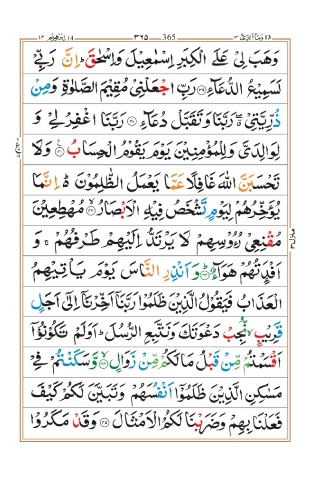 ابرٰهیم ١٤ ٣٦٥ 365 وما ابرئ ١٣
وَهَبَ لِیْ عَلَی الْكِبَرِ اِسْمٰعِیْلَ وَاِسْحٰقَ ؕ اِنَّ رَبِّیْ
لَسَمِیْعُ الدُّعَآءِ ﴿۳۹﴾ رَبِّ اجْعَلْنِیْ مُقِیْمَ الصَّلٰوةِ وَمِنْ
ذُرِّیَّتِیْ ۖ رَبَّنَا وَتَقَبَّلْ دُعَآءِ ﴿۴۰﴾ رَبَّنَا اغْفِرْ لِیْ وَ
لِوَالِدَیَّ وَلِلْمُؤْمِنِیْنَ یَوْمَ یَقُوْمُ الْحِسَابُ ﴿۴۱﴾ وَلَا
تَحْسَبَنَّ اللّٰهَ غَافِلًا عَمَّا یَعْمَلُ الظّٰلِمُوْنَ ؕ اِنَّمَا
یُؤَخِّرُهُمْ لِیَوْمٍ تَشْخَصُ فِیْهِ الْاَبْصَارُ ﴿۴۲﴾ مُهْطِعِیْنَ
مُقْنِعِیْ رُءُوْسِهِمْ لَا یَرْتَدُّ اِلَیْهِمْ طَرْفُهُمْ ۚ وَ
اَفْـِٕدَتُهُمْ هَوَآءٌ ﴿۴۳﴾ وَاَنْذِرِ النَّاسَ یَوْمَ یَاْتِیْهِمُ
الْعَذَابُ فَیَقُوْلُ الَّذِیْنَ ظَلَمُوْا رَبَّنَاۤ اَخِّرْنَاۤ اِلٰۤی اَجَلٍ
قَرِیْبٍ ۙ نُّجِبْ دَعْوَتَكَ وَنَتَّبِعِ الرُّسُلَ ؕ اَوَلَمْ تَكُوْنُوْۤا
اَقْسَمْتُمْ مِّنْ قَبْلُ مَا لَكُمْ مِّنْ زَوَالٍ ﴿۴۴﴾ وَّسَكَنْتُمْ فِیْ
مَسٰكِنِ الَّذِیْنَ ظَلَمُوْۤا اَنْفُسَهُمْ وَتَبَیَّنَ لَكُمْ كَیْفَ
فَعَلْنَا بِهِمْ وَضَرَبْنَا لَكُمُ الْاَمْثَالَ ﴿۴۵﴾ وَقَدْ مَكَرُوْا